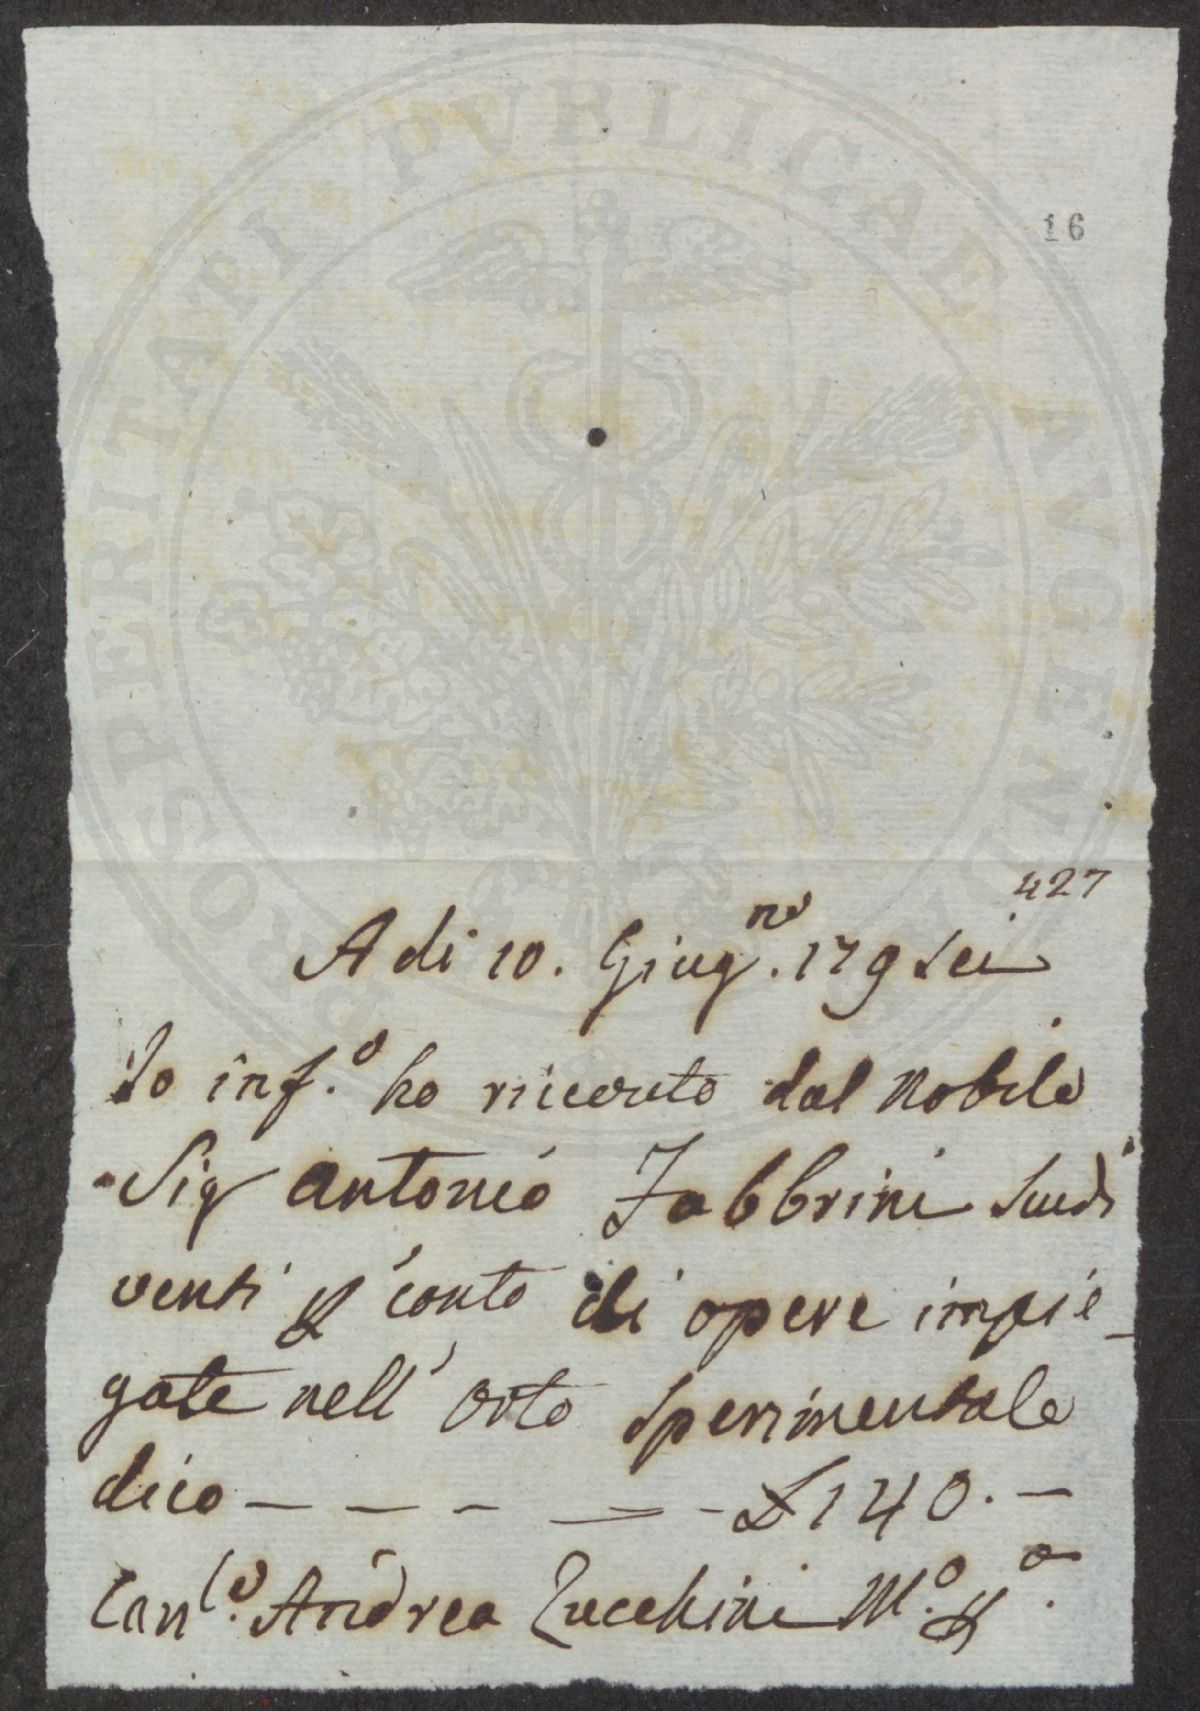 PROSPERITATI PVBLICAE AVGENDAE
16
427
A di 10. Giug.no 179 sei
Io inf.o ho ricevuto dal Nobile
Sig Antonio Fabbrini Scudi
venti conto di opere impie_
gate nell' Orto Sperimentale
dico — — — — - £ 140. —
Can.co Andrea Zucchini M.o